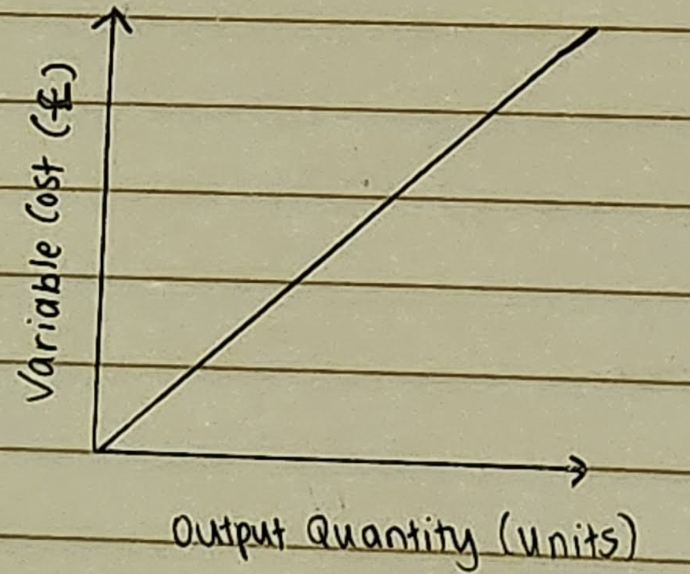 Variable Cost (£)
Output Quantity (units)